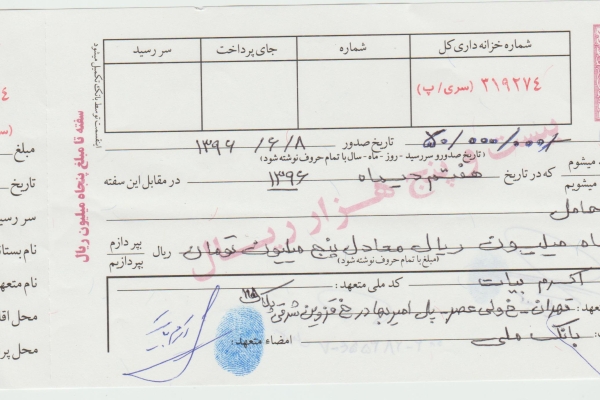 شماره خزانه داری کل
شماره
جای پرداخت
سر رسید
۳۱۹۲۷۴ (سری/پ)
سفته تا مبلغ پنجاه میلیون ریال
بیست و پنج هزار ریال
۵۰/۰۰۰/۰۰۰/ تاریخ صدور ۱۳۹۶/۶/۸
(تاریخ صدور و سررسید - روز - ماه - سال با تمام حروف نوشته شود)
میشوم
میشویم
که در تاریخ هفتم دیماه ۱۳۹۶ در مقابل این سفته
حامل
میلیون ریال معادل پنج میلیون تومان ریال بپردازم
بپردازیم
(مبلغ با تمام حروف نوشته شود)
اکرم بیات کد ملی متعهد:
تهران - خ ولی عصر - پل امیربهادر خ قزوین شرقی پلاک
بانک ملی امضاء متعهد:
مبلغ
تاریخ
سر رسید
نام بستا
نام متعهد
محل اقا
محل پر